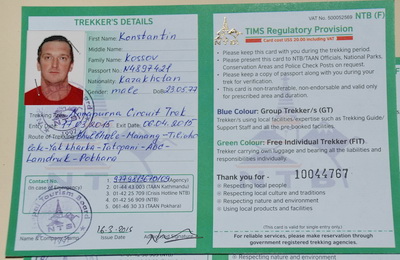 TREKKER'S DETAILS
First Name: Konstantin
Middle Name:
Family Name: Kossov
Passport No: N4897421
Nationality: Kazakhstan
Gender: male
Annapurna Circuit Trek
Exit Date: 09.04.2015
Manang - Tilicho
Lake - Yak kharka - Tatopani - ABC -
Landruk - Pokhara
Contact No.:
(In case of Emergency)
01 44 43 003 (TAAN Kathmandu)
01 42 25 709 (Crisis Hotline NTB)
01 42 56 909 (NTB)
061 46 30 33 (TAAN Pokhara)
16-3-2015
Issue Date
VAT No: 500052969 NTB (F)
TIMS Regulatory Provision
Card cost US$ 20.00 including VAT
• Please keep this card with you during the trekking period.
• Please present this card to NTB/TAAN Officials, National Parks, Conservation Areas and Police Check Posts on request.
• Please keep a copy of passport along with you during your trek for verification.
• This card is non-transferable, non-endorsable and valid only for prescribed area and duration.
Blue Colour: Group Trekker/s (GT)
Trekker/s using local facilities, expertise such as Trekking Guide/
Support Staff and all the pre-booked facilities.
Green Colour: Free Individual Trekker (FIT)
Trekker carrying own luggage and bearing all the liabilities and
responsibilities individually.
Thank you for - 10044767
• Respecting local people
• Respecting local culture and traditions
• Respecting nature and environment
• Using local products and facilities
(This card is valid for single entry only)
For reliable services, please make reservation through
government registered trekking agencies.